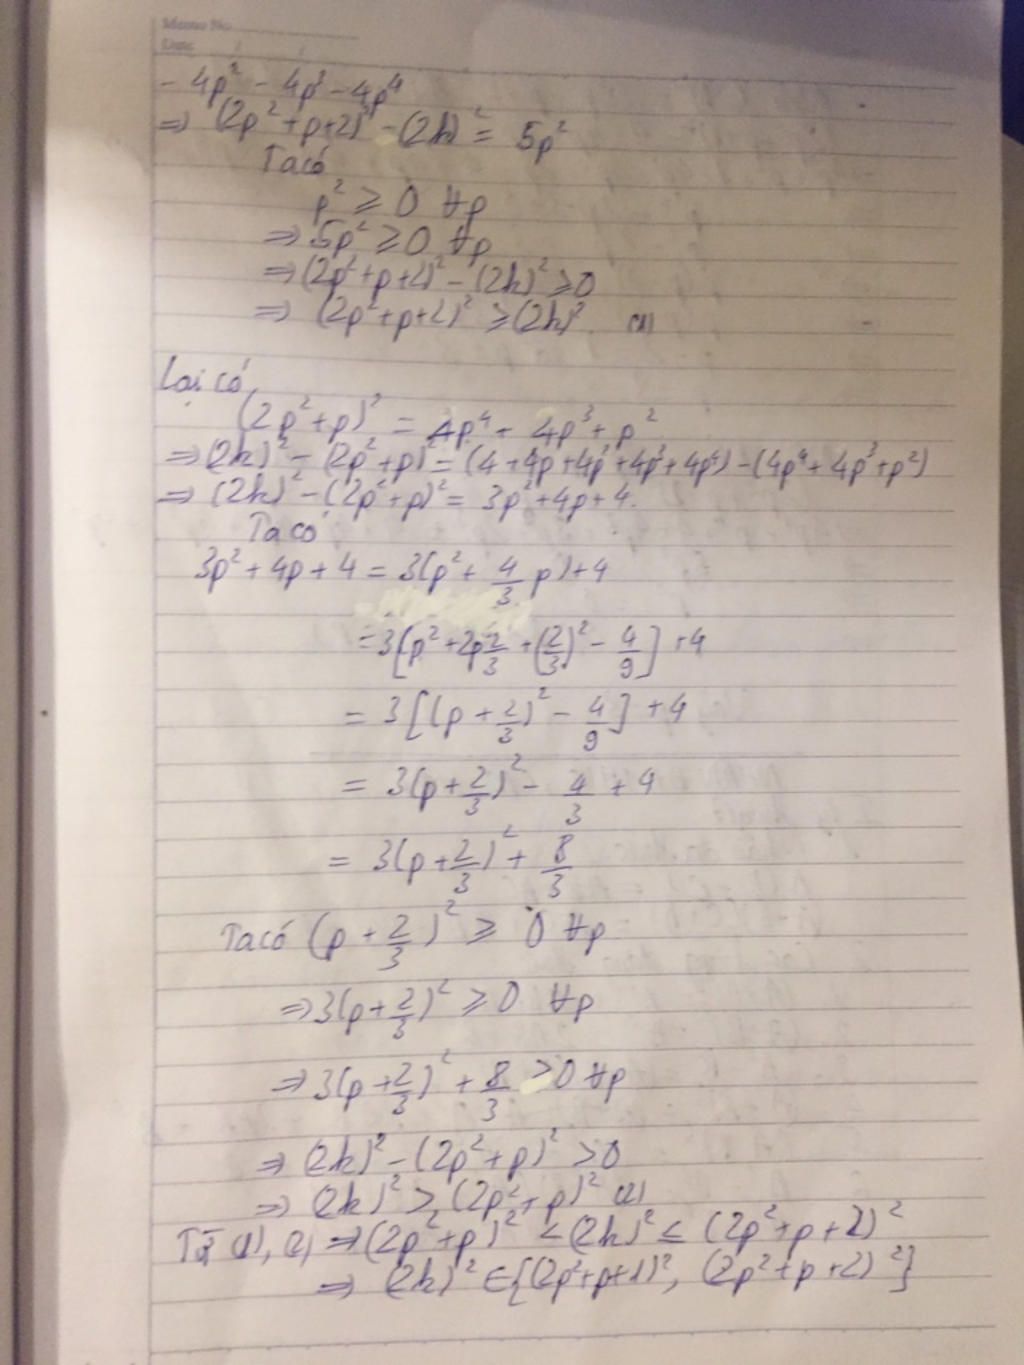 Memo No.
Date / /
- 4p² - 4p³ - 4p⁴
⇒ (2p² + p + 2)² - (2k)² = 5p²
Ta có
p² ≥ 0 ∀p
⇒ 5p² ≥ 0 ∀p
⇒ (2p² + p + 2)² - (2k)² ≥ 0
⇒ (2p² + p + 2)² ≥ (2k)². (1)
Lại có
(2p² + p)² = 4p⁴ + 4p³ + p²
⇒ (2k)² - (2p² + p)² = (4 + 4p + 4p² + 4p³ + 4p⁴) - (4p⁴ + 4p³ + p²)
⇒ (2k)² - (2p² + p)² = 3p² + 4p + 4.
Ta có
3p² + 4p + 4 = 3(p² + 4/3 p) + 4
= 3[p² + 2p 2/3 + (2/3)² - 4/9] + 4
= 3[(p + 2/3)² - 4/9] + 4
= 3(p + 2/3)² - 4/3 + 4
= 3(p + 2/3)² + 8/3
Ta có (p + 2/3)² ≥ 0 ∀p
⇒ 3(p + 2/3)² ≥ 0 ∀p
⇒ 3(p + 2/3)² + 8/3 > 0 ∀p
⇒ (2k)² - (2p² + p)² > 0
⇒ (2k)² > (2p² + p)² (2)
Từ (1), (2) ⇒ (2p² + p)² < (2k)² ≤ (2p² + p + 2)²
⇒ (2k)² ∈ {(2p² + p + 1)², (2p² + p + 2)²}